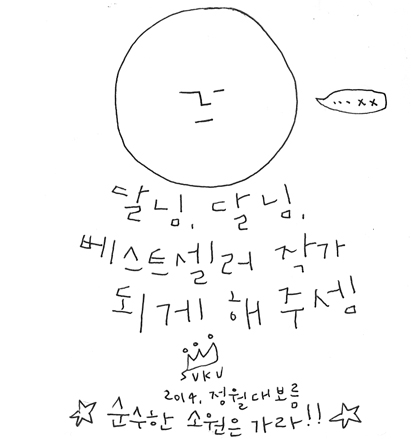 ...xx
달님, 달님,
베스트셀러 작가
되게 해 주셈
SUKU
2014, 정월대보름
☆ 순수한 소원은 가라!! ☆